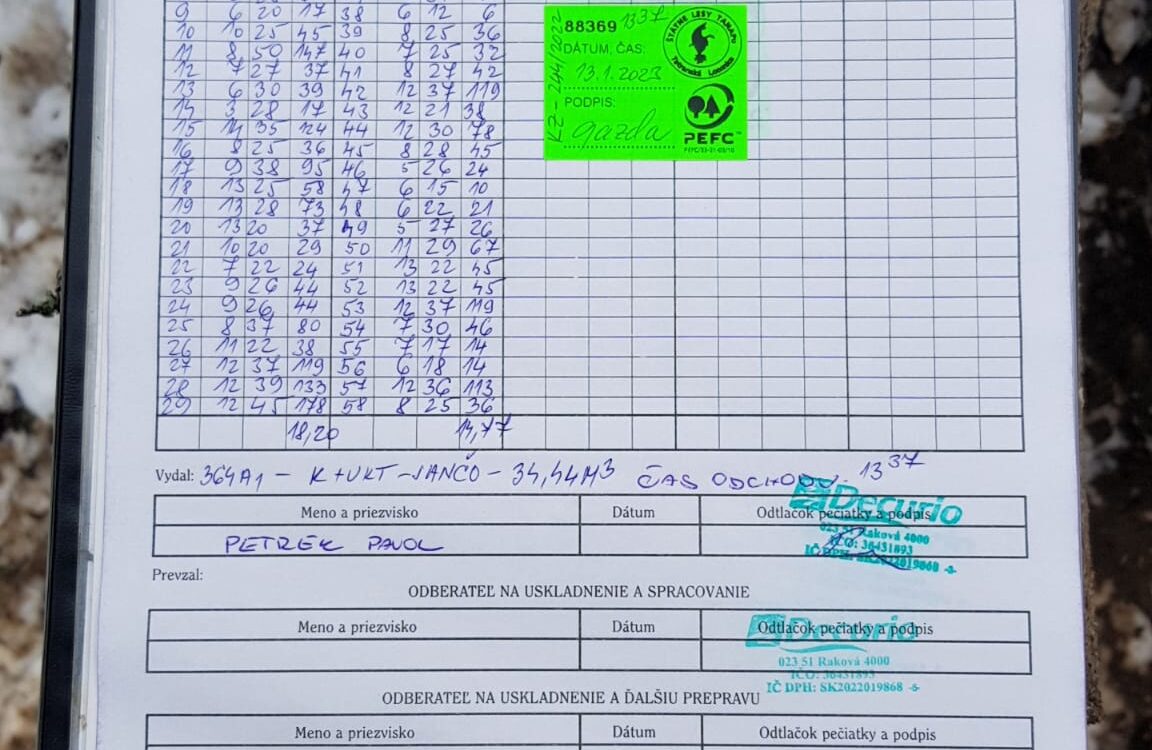 9 6 20 17 38 6 12 6
10 10 25 45 39 8 25 36
11 8 50 147 40 7 25 32
12 7 27 37 41 8 27 42
13 6 30 39 42 12 37 119
14 3 28 17 43 12 21 38
15 14 35 124 44 12 30 78
16 8 25 36 45 8 28 45
17 9 38 95 46 5 26 24
18 13 25 58 47 6 15 10
19 13 28 73 48 6 22 21
20 13 20 37 49 5 27 26
21 10 20 29 50 11 29 67
22 7 22 24 51 13 22 45
23 9 26 44 52 13 22 45
24 9 26 44 53 12 37 119
25 8 37 80 54 7 30 46
26 11 22 38 55 7 17 14
27 12 37 119 56 6 18 14
28 12 39 133 57 12 36 113
29 12 45 178 58 8 25 36
18,20 14,77
88369 1337
ŠTÁTNE LESY TANAPu
Tatranská Lomnica
DÁTUM, ČAS:
13.1.2023
PODPIS:
gazda
PEFC™
KZ - 244/2022
Vydal: 364A1 - K+UKT-JANČO - 34,44M3 ČAS ODCHODU. 13 37
Meno a priezvisko Dátum Odtlačok pečiatky a podpis
PETREK PAVOL
Decurio
023 51 Raková 4000
IČO: 36431893
IČ DPH: SK2022019868 -8-
Prevzal:
ODBERATEĽ NA USKLADNENIE A SPRACOVANIE
Meno a priezvisko Dátum Odtlačok pečiatky a podpis
Decurio
023 51 Raková 4000
IČO: 36431893
IČ DPH: SK2022019868 -8-
ODBERATEĽ NA USKLADNENIE A ĎALŠIU PREPRAVU
Meno a priezvisko Dátum Odtlačok pečiatky a podpis